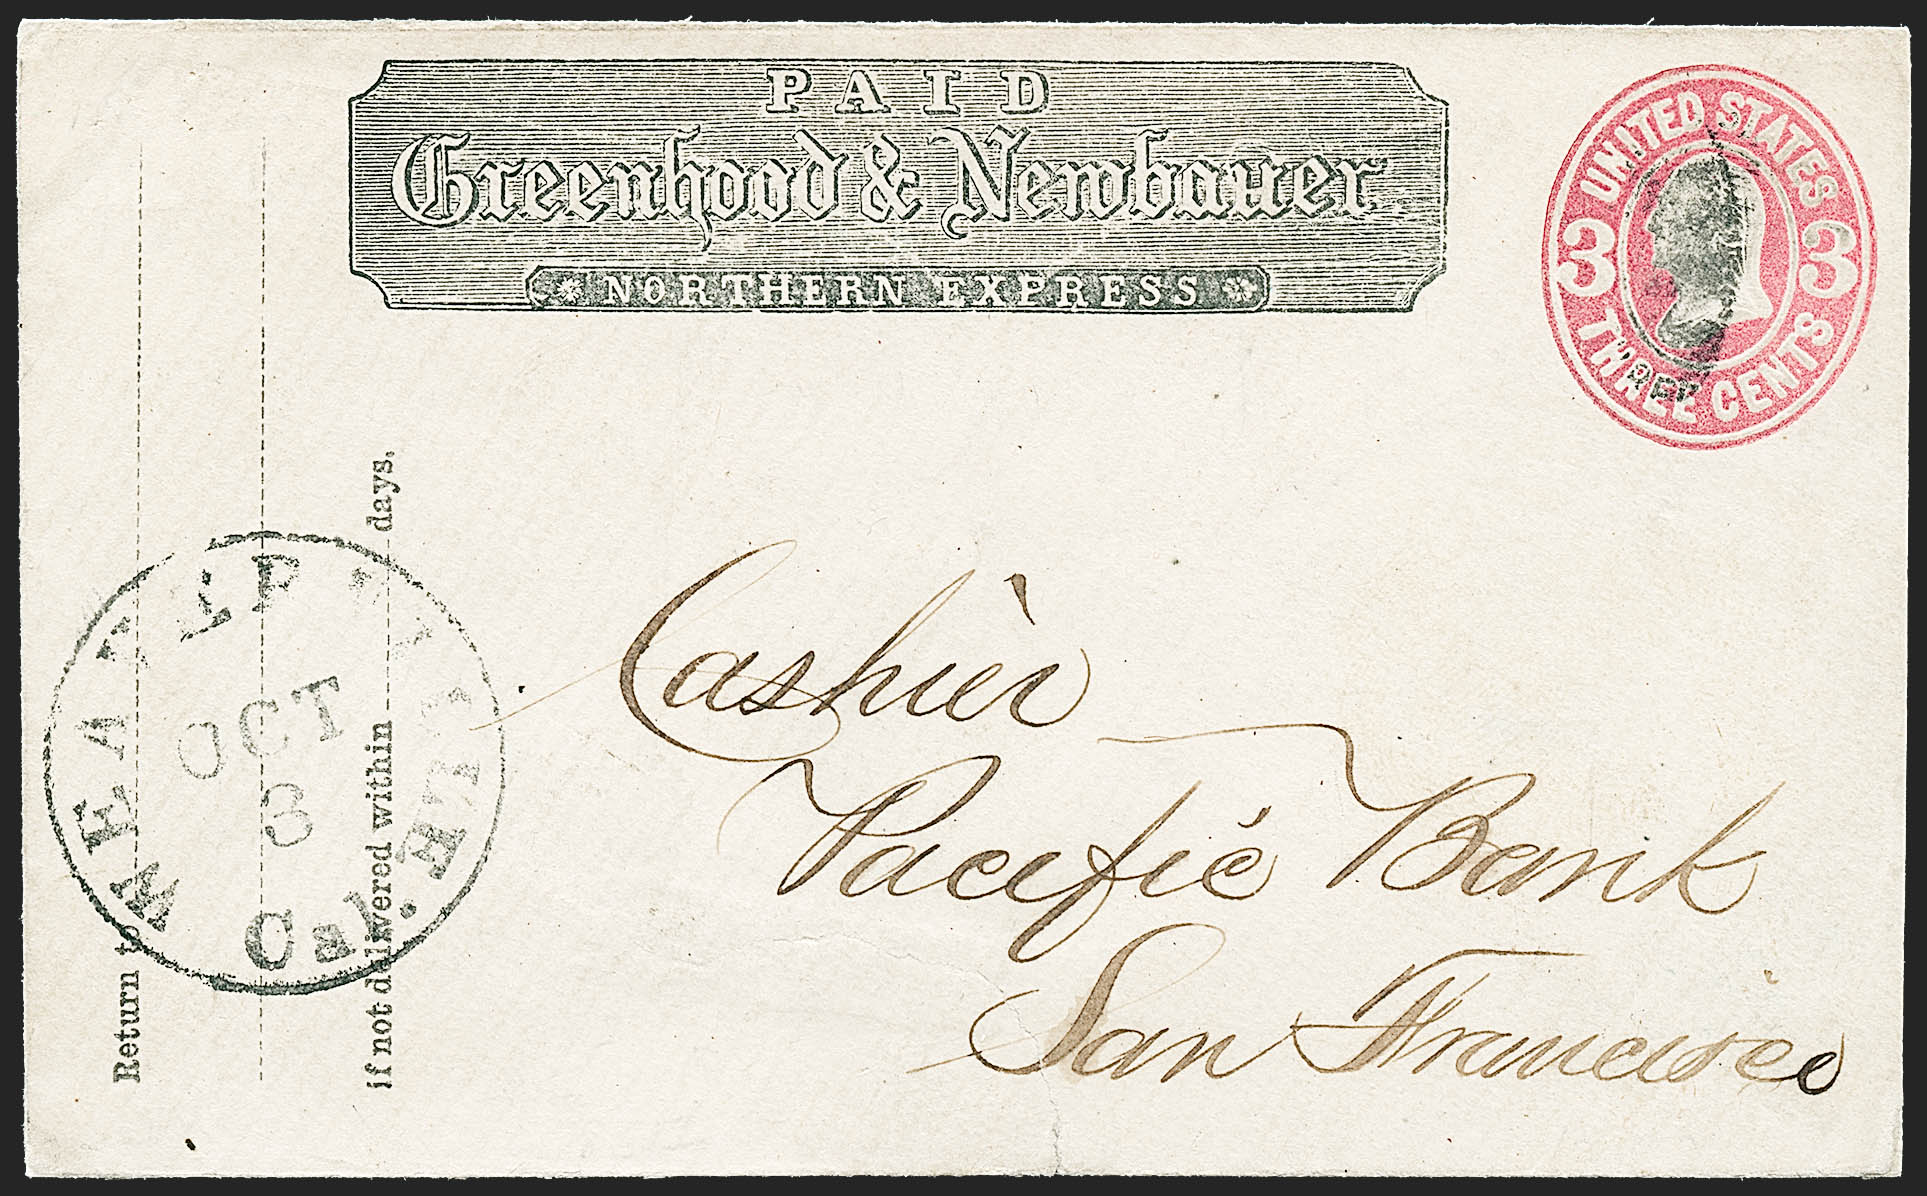 PAID
Greenhood & Newbauer
NORTHERN EXPRESS
UNITED STATES
3 3
THREE CENTS
WEAVERVILLE
OCT
3
Cal.
Return to
if not delivered within days.
Cashier
Pacific Bank
San Francisco